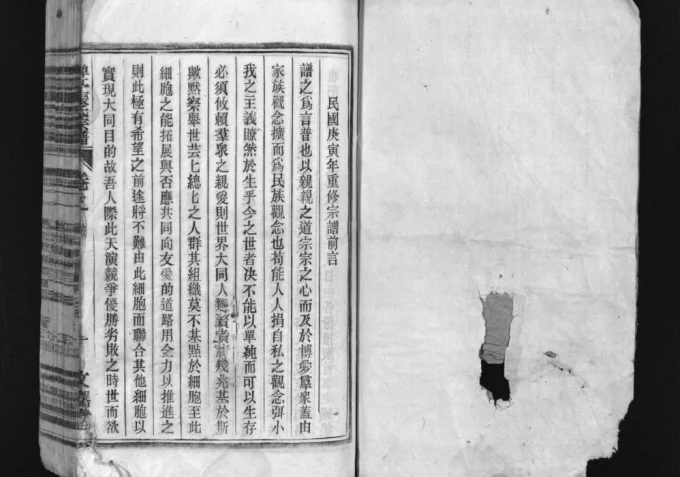 民國庚寅年重修宗譜前言
譜之為言普也以親親之道宗宗之心而及於博愛羣眾蓋由
家族觀念擴而為民族觀念也苟能人人捐自私之觀念弭小
我之主義瞭然於生乎今之世者決不能以單純而可以生存
必須攸賴羣眾之親愛則世界大同人類賓賓幾兆基於斯
歟默察舉世芸七總七之人群其組織莫不基點於細胞至此
細胞之能拓展與否應共同向友愛的道路用全力以推進之
則此極有希望之前途將不難由此細胞而聯合其他細胞以
實現大同目的故吾人際此天演競爭優勝劣敗之時世而欲